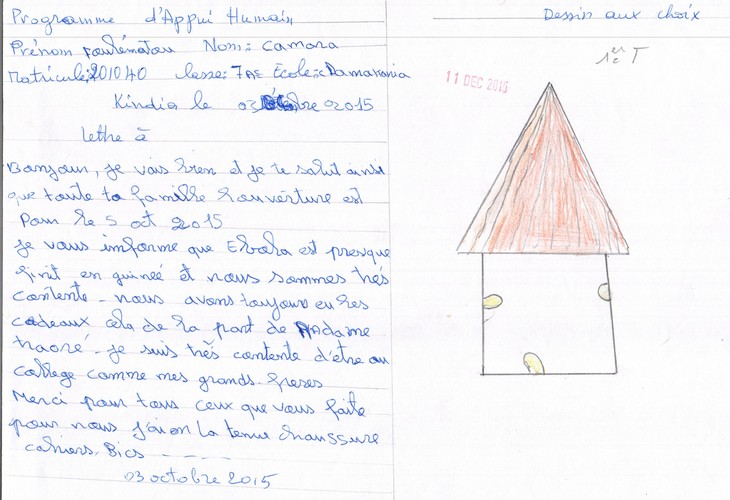 Programme d'Appui Humain
Prénom fatématou Nom: camara
Matricule: 201040 classe: 7AE Ecole: Damakania
Kindia le 03 octobre 2015
lettre à
Bonjour, je vais bien et je te salut ainsi
que toute ta famille l'ouverture est
Pour le 5 oct 2015
je vous imforme que Ebola est presque
finit en guineé et nous sommes très
contente - nous avons toujours eu les
cadeaux cela de la part de Madame
traoré - je suis très contente d'être au
collège comme mes grands-freres
Merci pour tous ceux que vous faite
pour nous j'ai eu la tenue chaussure
cahiers. Bics - - - - -
03 octobre 2015
Dessin aux choix
1er T
11 DEC 2015